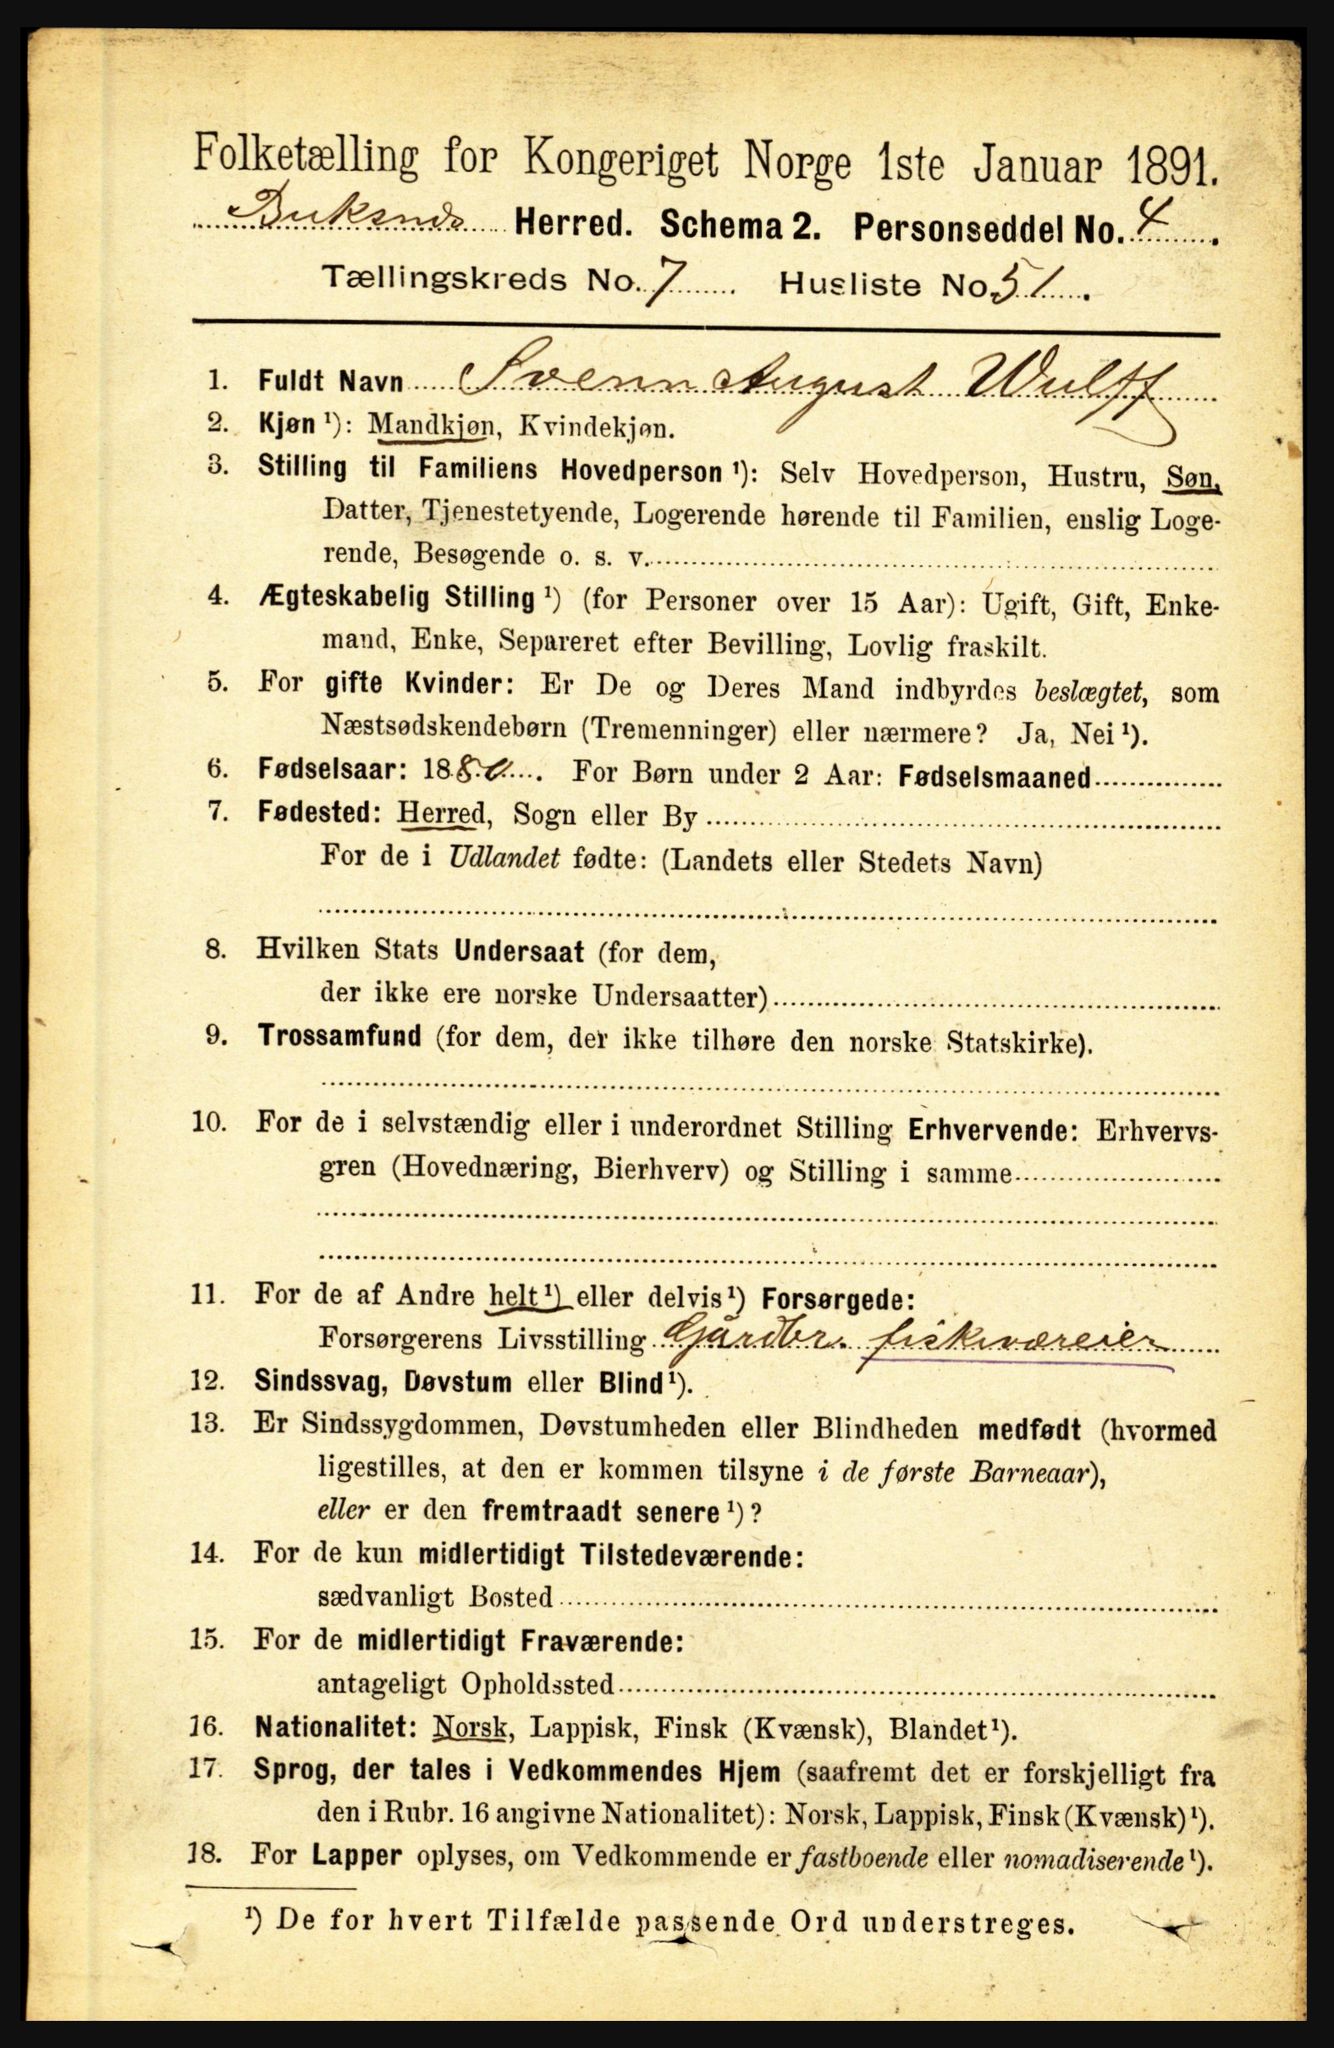 Folketælling for Kongeriget Norge 1ste Januar 1891.
Buksnes Herred. Schema 2. Personseddel No. 4.
Tællingskreds No. 7 Husliste No. 51.
1. Fuldt Navn Svenn August Wulff
2. Kjøn¹): Mandkjøn, Kvindekjøn.
3. Stilling til Familiens Hovedperson¹): Selv Hovedperson, Hustru, Søn,
Datter, Tjenestetyende, Logerende hørende til Familien, enslig Loge-
rende, Besøgende o. s. v.
4. Ægteskabelig Stilling¹) (for Personer over 15 Aar): Ugift, Gift, Enke-
mand, Enke, Separeret efter Bevilling, Lovlig fraskilt.
5. For gifte Kvinder: Er De og Deres Mand indbyrdes beslægtet, som
Næstsødskendebørn (Tremenninger) eller nærmere? Ja, Nei¹).
6. Fødselsaar: 1880. For Børn under 2 Aar: Fødselsmaaned
7. Fødested: Herred, Sogn eller By
For de i Udlandet fødte: (Landets eller Stedets Navn)
8. Hvilken Stats Undersaat (for dem,
der ikke ere norske Undersaatter)
9. Trossamfund (for dem, der ikke tilhøre den norske Statskirke).
10. For de i selvstændig eller i underordnet Stilling Erhvervende: Erhvervs-
gren (Hovednæring, Bierhverv) og Stilling i samme
11. For de af Andre helt¹) eller delvis¹) Forsørgede:
Forsørgerens Livsstilling Gårdbr. fiskeværeier
12. Sindssvag, Døvstum eller Blind¹).
13. Er Sindssygdommen, Døvstumheden eller Blindheden medfødt (hvormed
ligestilles, at den er kommen tilsyne i de første Barneaar),
eller er den fremtraadt senere¹)?
14. For de kun midlertidigt Tilstedeværende:
sædvanligt Bosted
15. For de midlertidigt Fraværende:
antageligt Opholdssted
16. Nationalitet: Norsk, Lappisk, Finsk (Kvænsk), Blandet¹).
17. Sprog, der tales i Vedkommendes Hjem (saafremt det er forskjelligt fra
den i Rubr. 16 angivne Nationalitet): Norsk, Lappisk, Finsk (Kvænsk)¹).
18. For Lapper oplyses, om Vedkommende er fastboende eller nomadiserende¹).
¹) De for hvert Tilfælde passende Ord understreges.